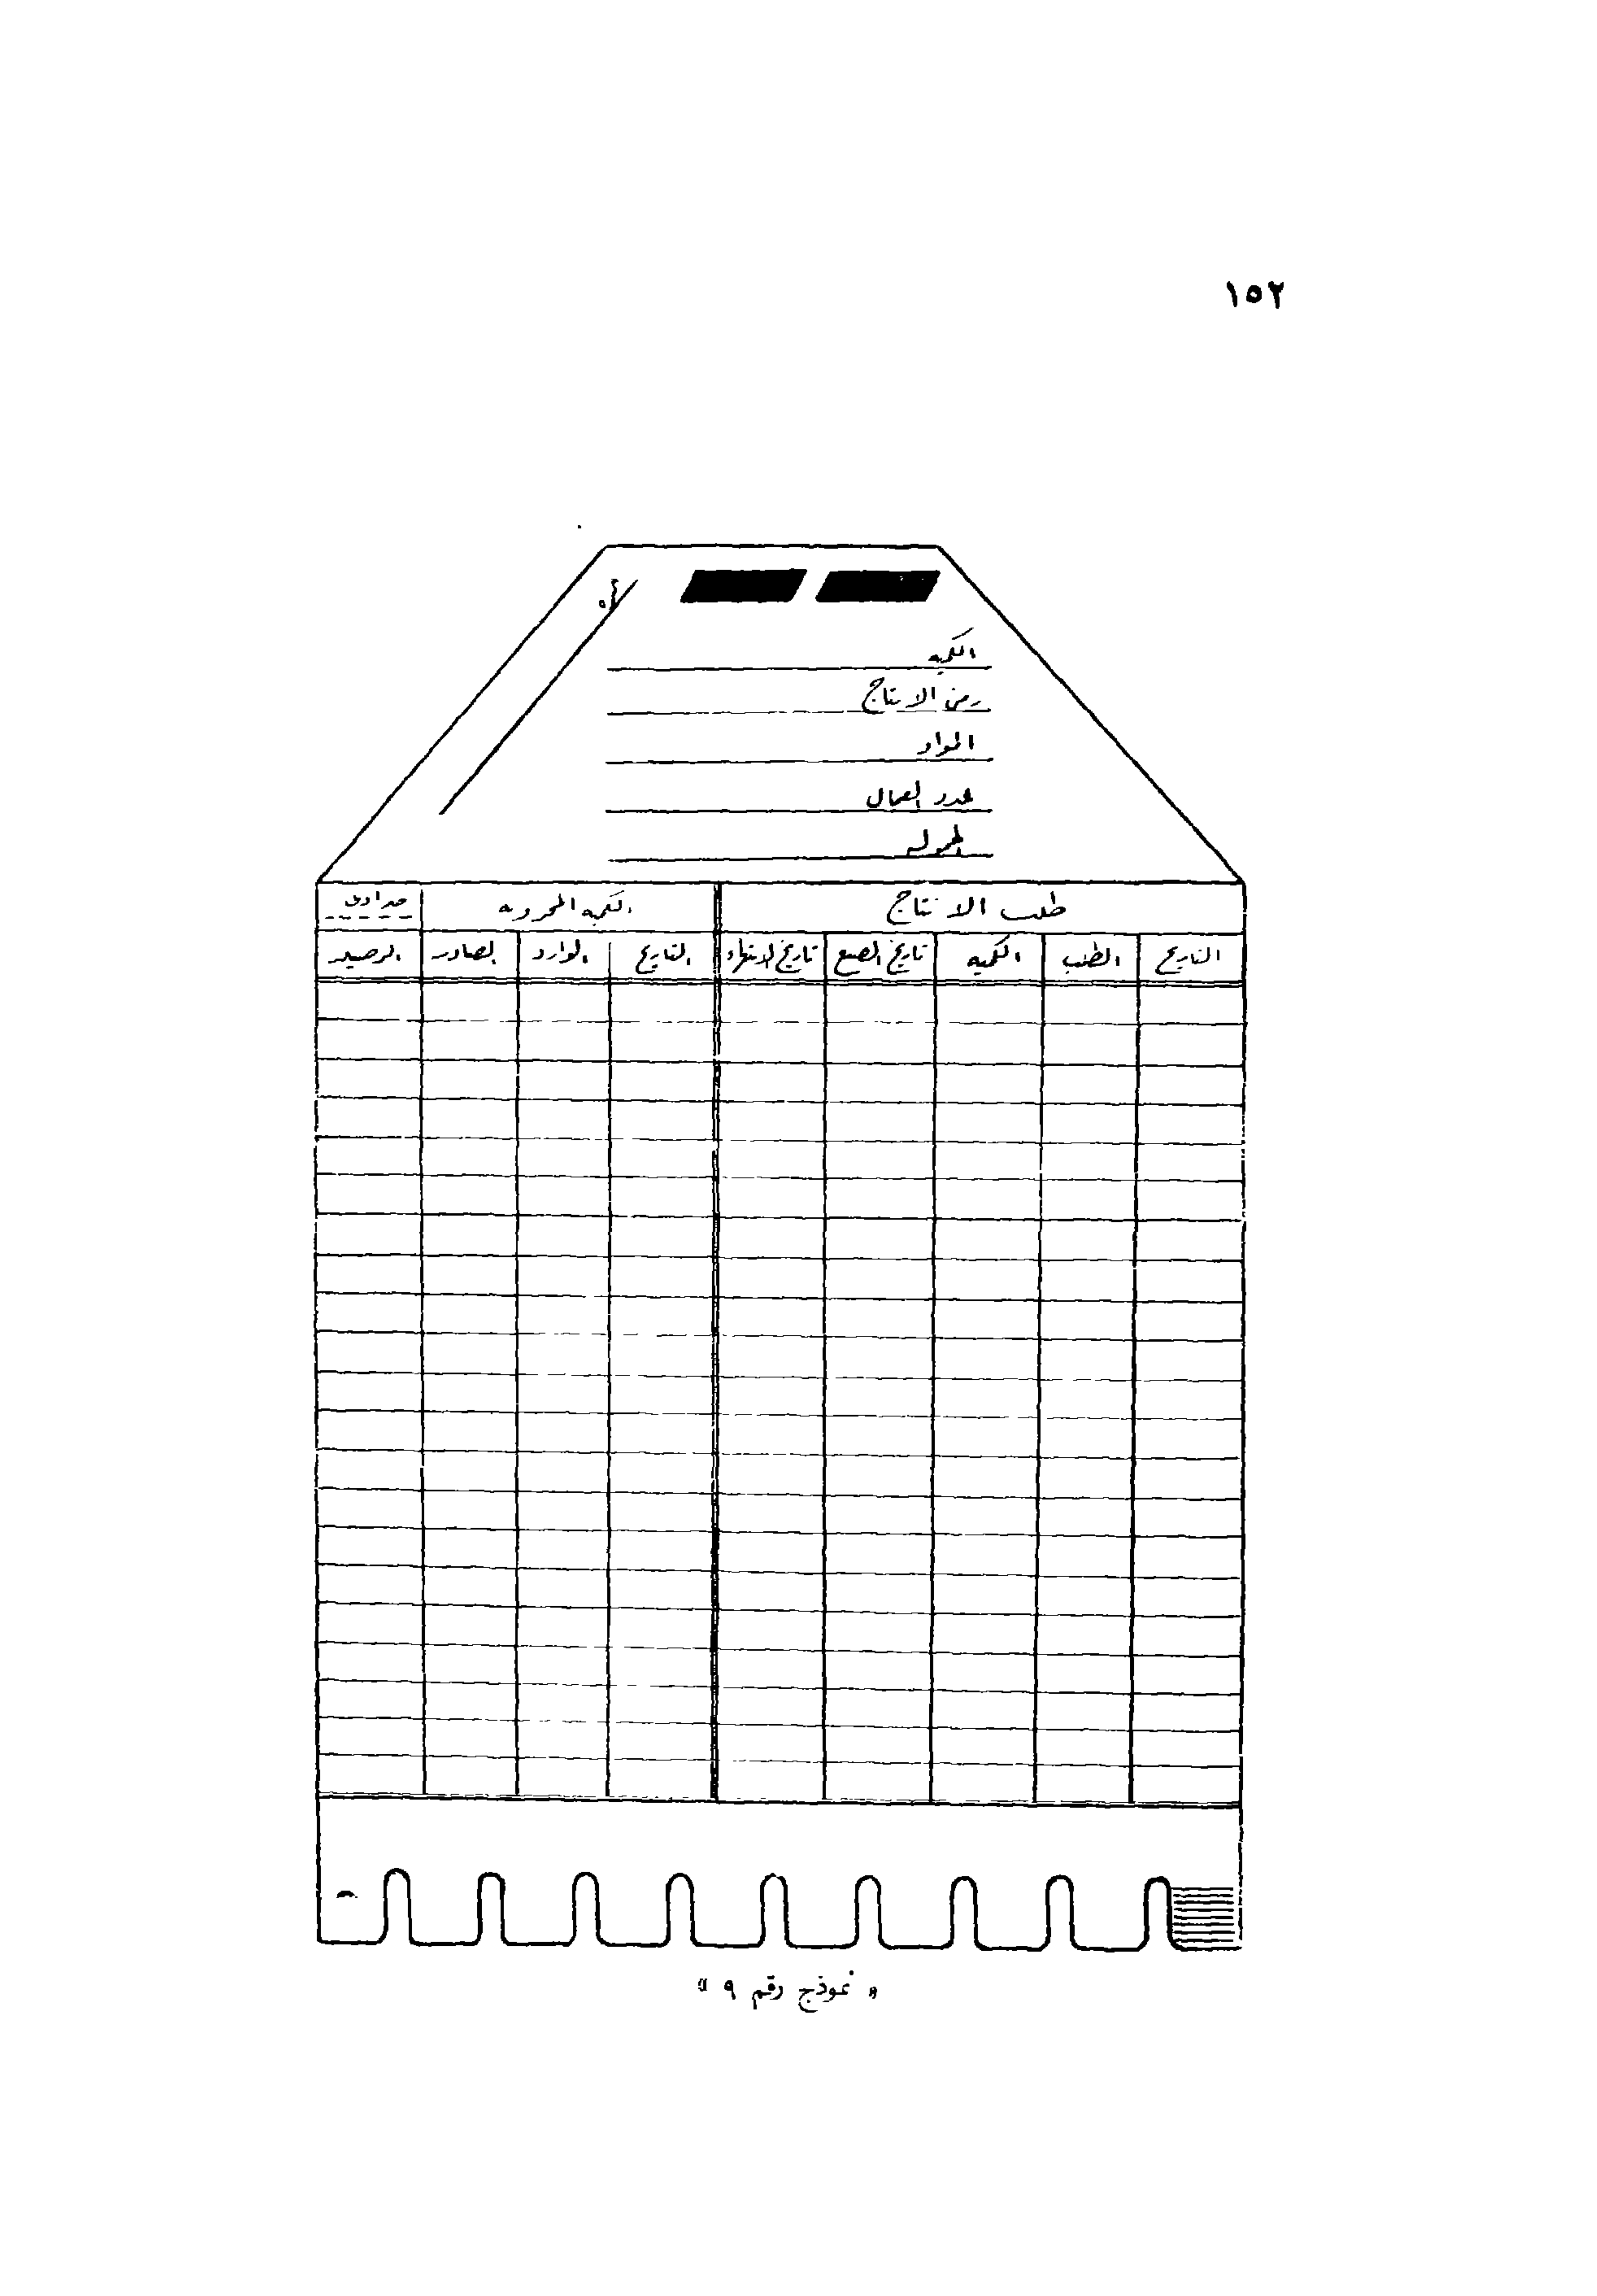 ١٥٢
الكميه
زمن الانتاج
المواد
عدد العمال
طلب الانتاج الكميه المخزونه
التاريخ الطلب الكميه تاريخ الصنع تاريخ الانتهاء التاريخ الوارد الصادر الرصيد
« نموذج رقم ٩ »